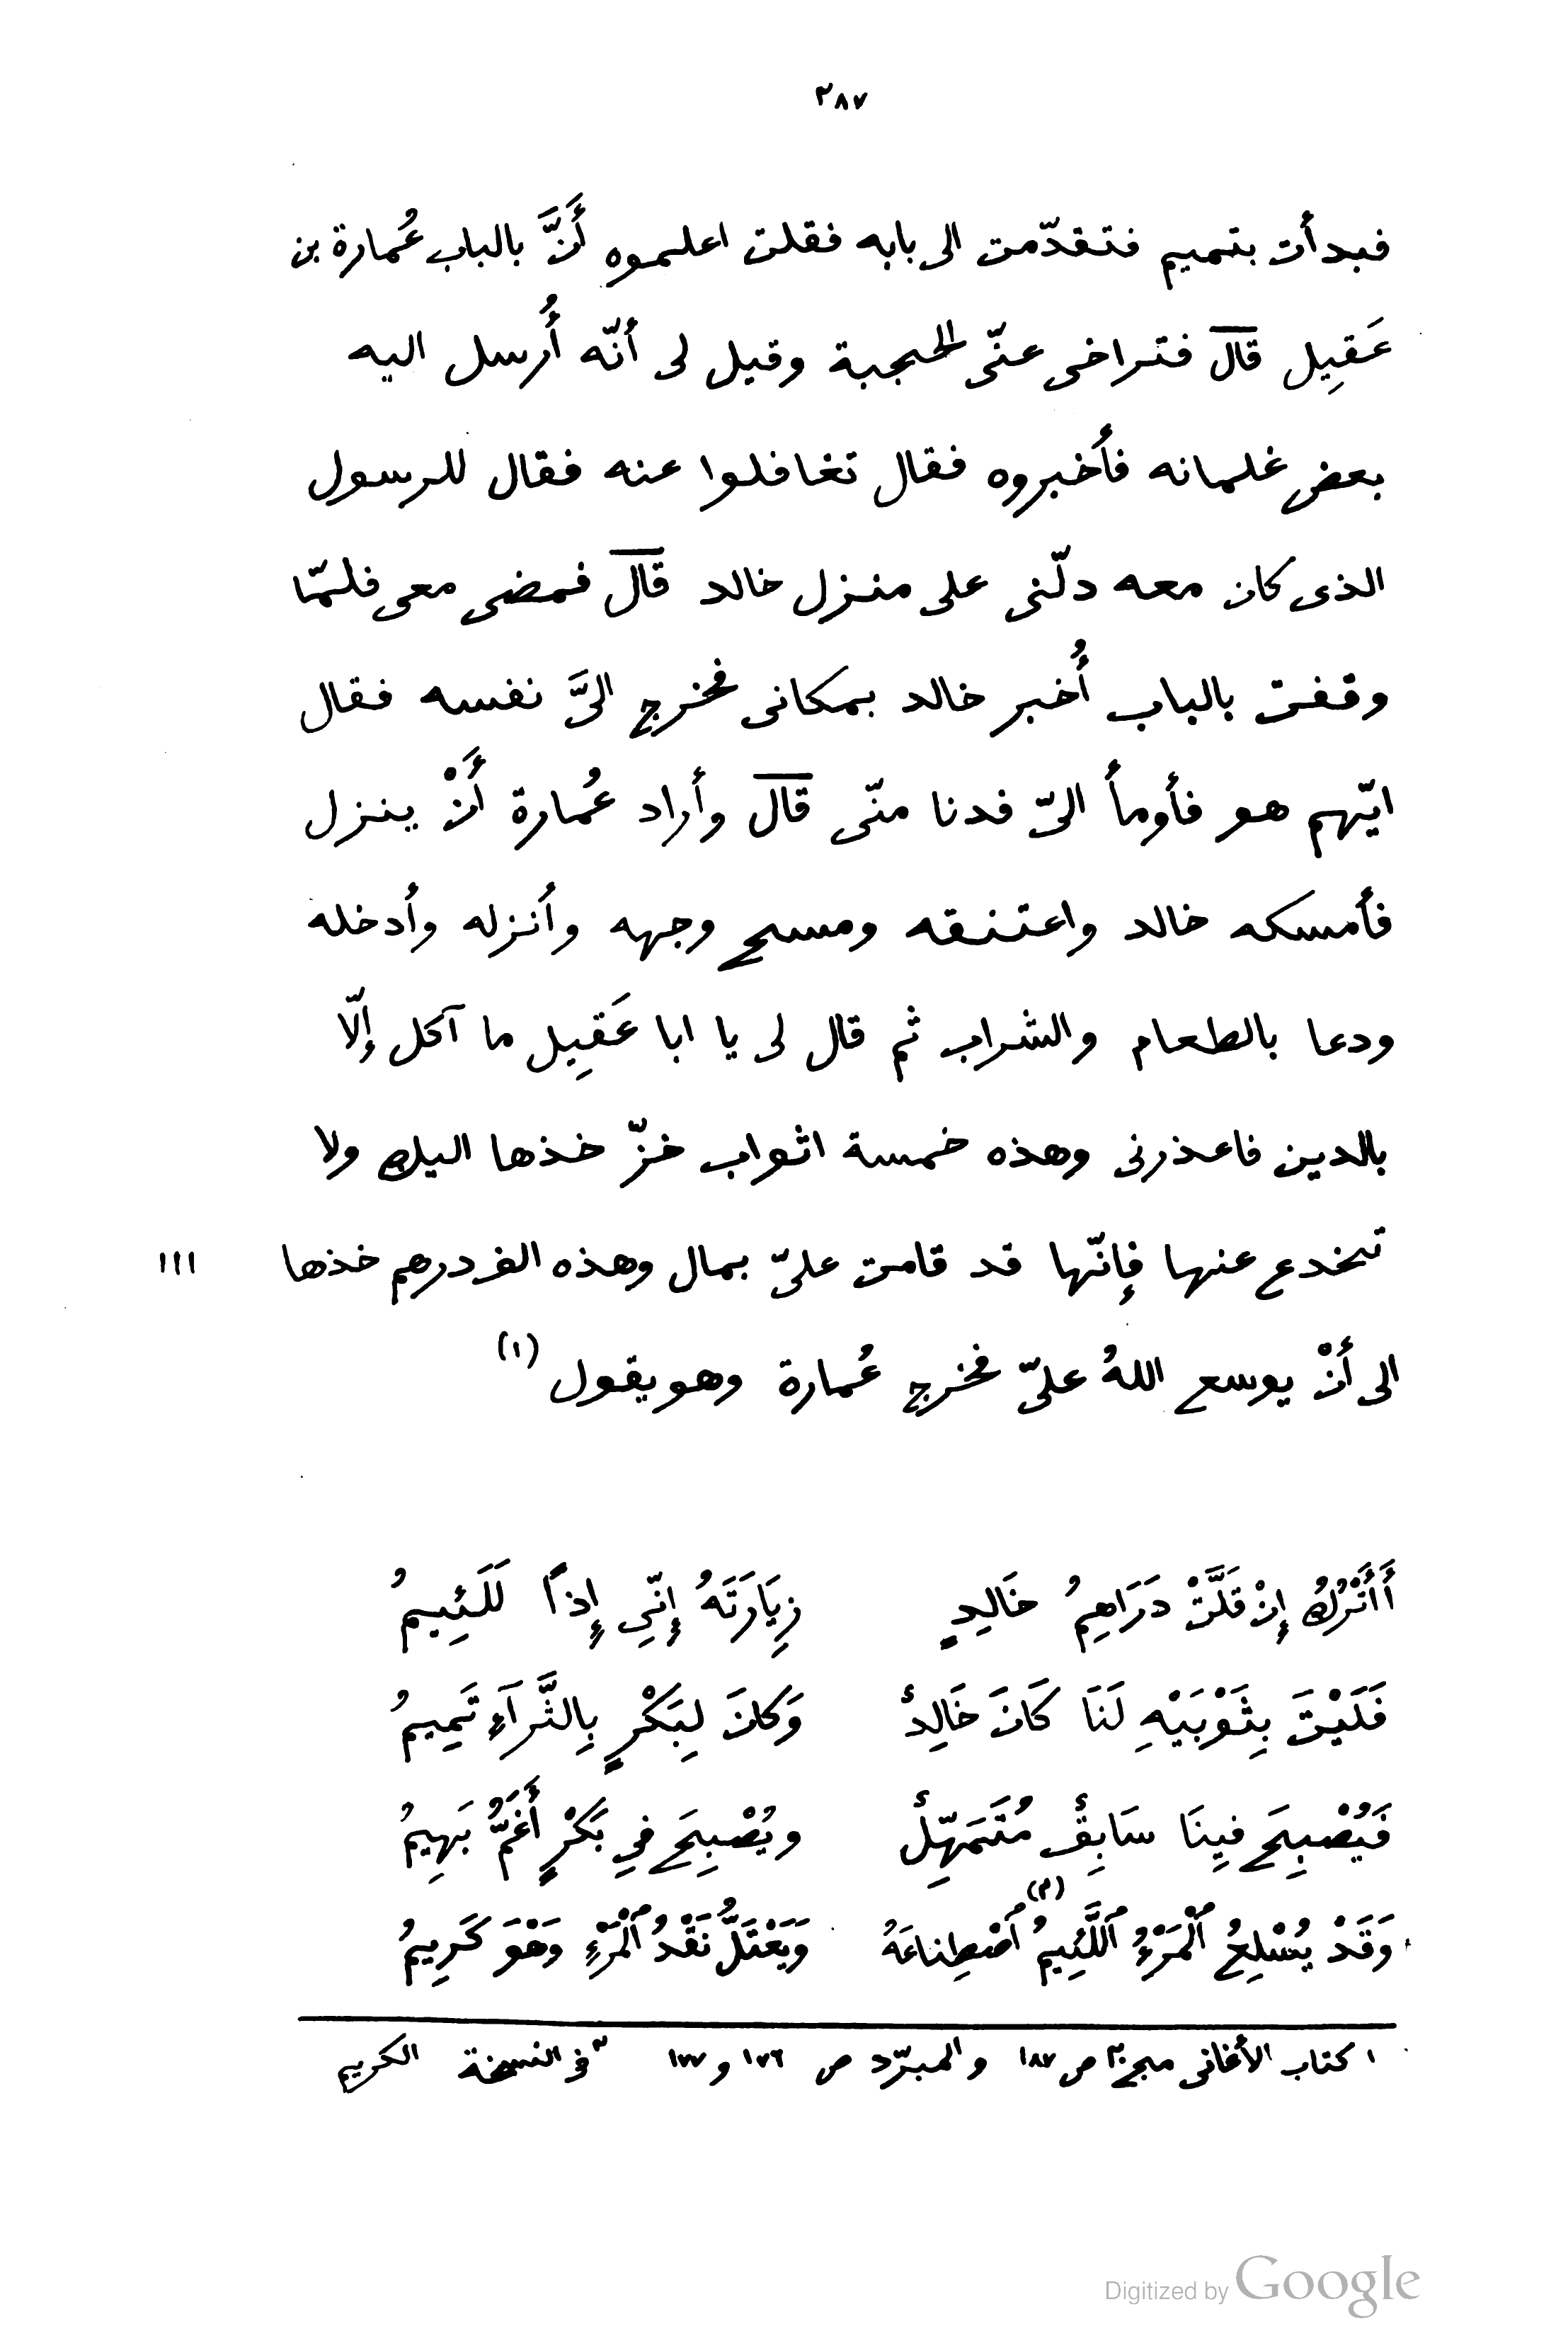 ٢٨٧
فبدأت بتميم فتقدّمت الى بابه فقلت اعلموه أَنَّ بالباب عُمارة بن
عَقِيل قال فتراخى عنّى الحجبة وقيل لى أنّه أُرسل اليه
بعض غلمانه فأخبروه فقال تغافلوا عنه فقال للرسول
الذى كان معه دلّنى على منزل خالد قال فمضى معى فلمّا
وقفت بالباب أُخبر خالد بمكانى فخرج الىَّ نفسه فقال
ايّهم هو فأومأ الىّ فدنا منّى قال وأراد عُمارة أَنْ ينزل
فأمسكه خالد واعتنقه ومسح وجهه وأنزله وأدخله
ودعا بالطعام والشراب ثم قال لى يا ابا عَقِيل ما آكل إلّا
بالدين فاعذرنى وهذه خمسة اثواب خزّ خذها اليك ولا
تخدع عنها فإنّها قد قامت علىّ بمال وهذه الف درهم خذها ١١١
الى أنْ يوسع اللهُ علىّ فخرج عُمارة وهو يقول (١)
أَأَتْرُكُ إِنْ قَلَّتْ دَرَاهِمُ خَالِدٍ زِيَارَتَهُ إِنِّى إِذاً لَلَئِيمُ
فَلَيْتَ بِثَوْبَيْهِ لَنَا كَانَ خَالِدٌ وَكانَ لِبَكْرٍ بِالثَّرَآءِ تَمِيمُ
فَيُصْبِحَ فِينَا سَابِقٌ مُتَمَهِّلٌ ويُصْبِحَ فِي بَكْرٍ أَغَمُّ بَهِيمُ
وَقَدْ يُسْلِعُ ٱلْمَرْءُ ٱللَّئِيمُ (٢) ٱصْطِناعَهُ وَيَعْتَلُّ نَقْدُ ٱلْمَرْءِ وَهْوَ كَرِيمُ
١ كتاب الأغانى مج ٢٠ ص ١٨٧ والمبرّد ص ١٧٦ و ١٧٧ ٢ فى النسخة الكريم
Digitized by Google